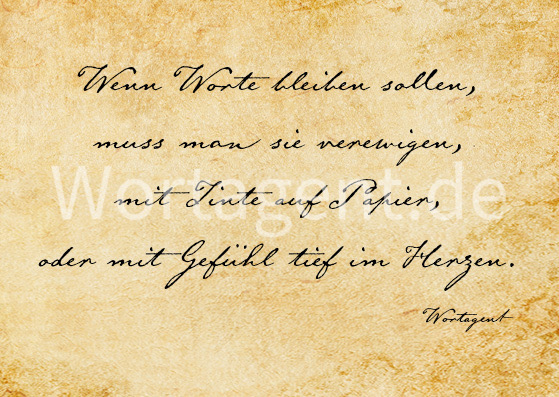 Wenn Worte bleiben sollen,
muss man sie verewigen,
Wortagent.de
mit Tinte auf Papier,
oder mit Gefühl tief im Herzen.
Wortagent